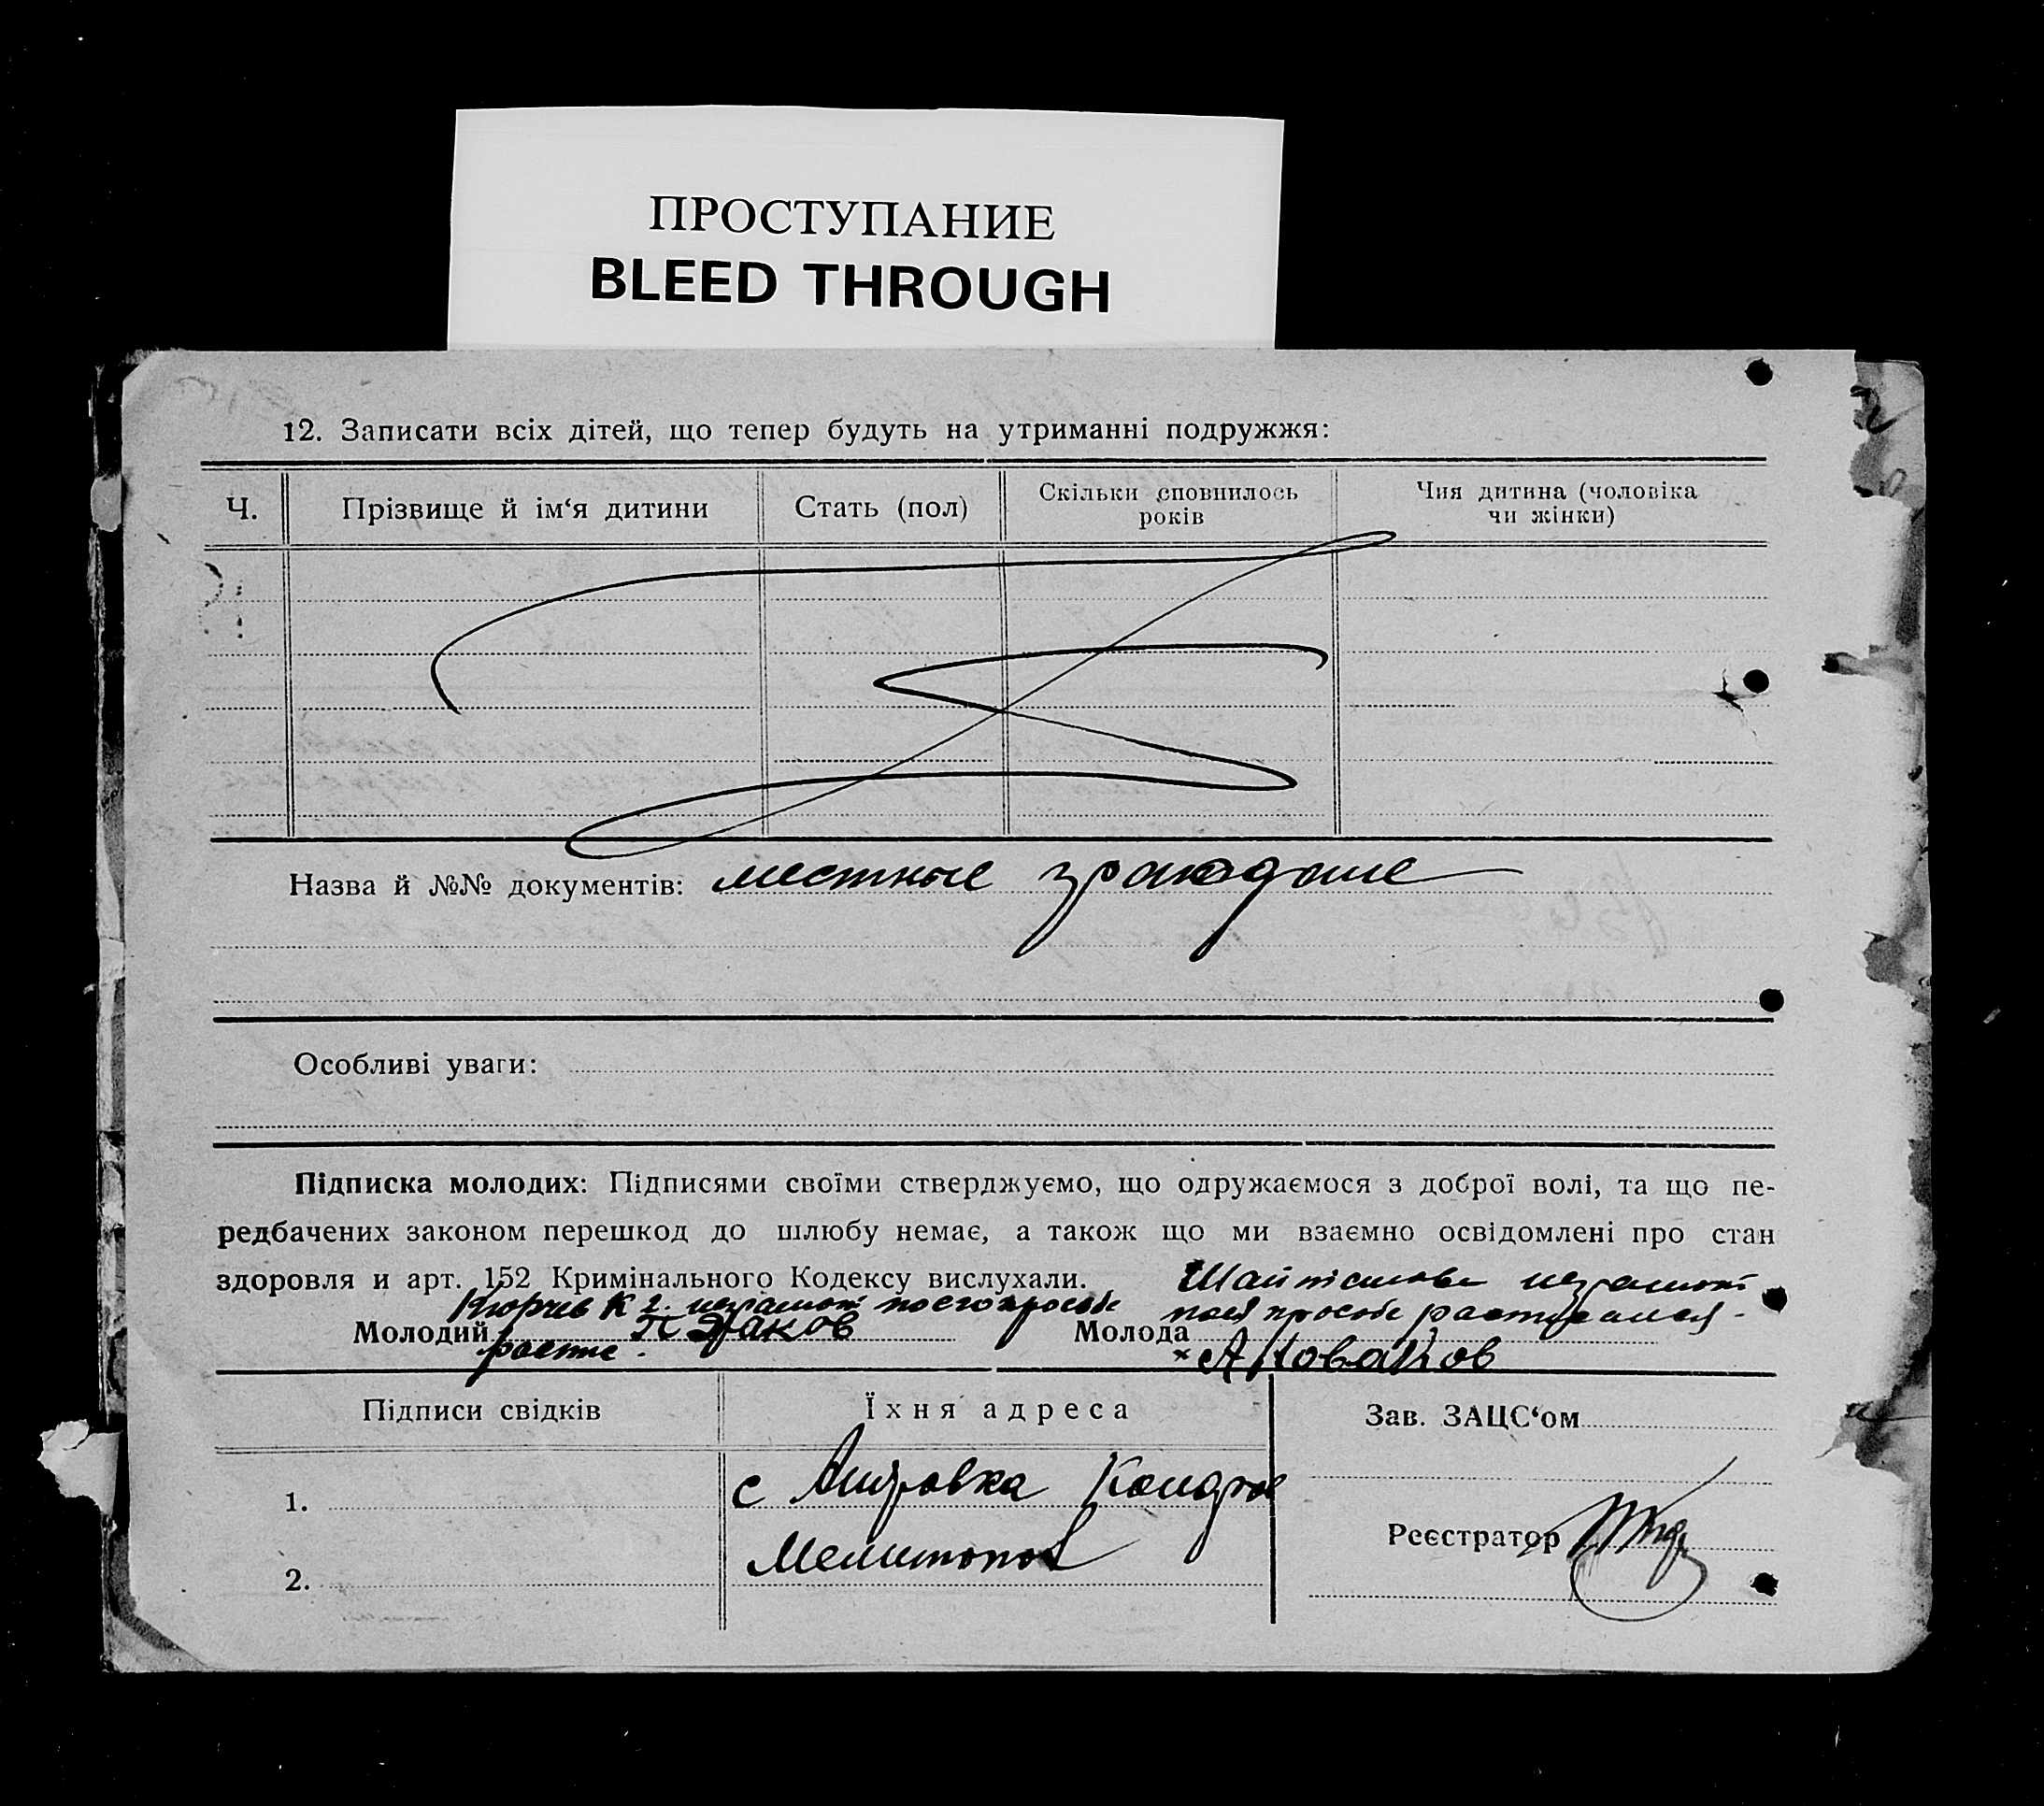 ПРОСТУПАНИЕ
BLEED THROUGH
12. Записати всіх дітей, що тепер будуть на утриманні подружжя:
Ч. Прізвище й ім‘я дитини Стать (пол) Скільки сповнилось років Чия дитина (чоловіка чи жінки)
Назва й №№ документів: местные граждане
Особливі уваги:
Підписка молодих: Підписями своїми стверджуємо, що одружаємося з доброї волі, та що пе-
редбачених законом перешкод до шлюбу немає, а також що ми взаємно освідомлені про стан
здоровля и арт. 152 Кримінального Кодексу вислухали.
К г. неграмот по его просьбе
Молодий
неграмот
Молода
А Новаков
Підписи свідків Їхня адреса Зав. ЗАЦС‘ом
1. с
Реєстратор
2.